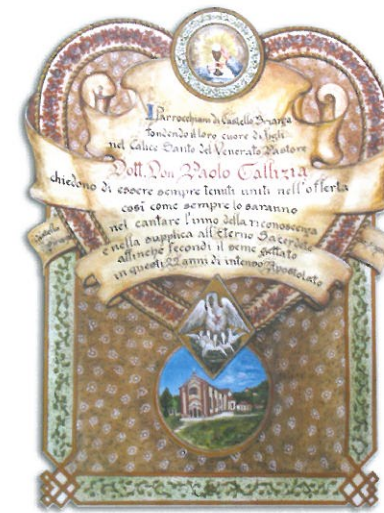 I Parrocchiani di Castello Brianza
fondendo il loro cuore di figli
nel Calice Santo del Venerato Pastore
Dott. Don Paolo Gallizia
chiedono di essere sempre tenuti uniti nell'offerta
così come sempre lo saranno
nel cantare l'inno della riconoscenza
e nella supplica all'Eterno Sacerdote
affinchè fecondi il seme gettato
in questi 22 anni di intenso Apostolato